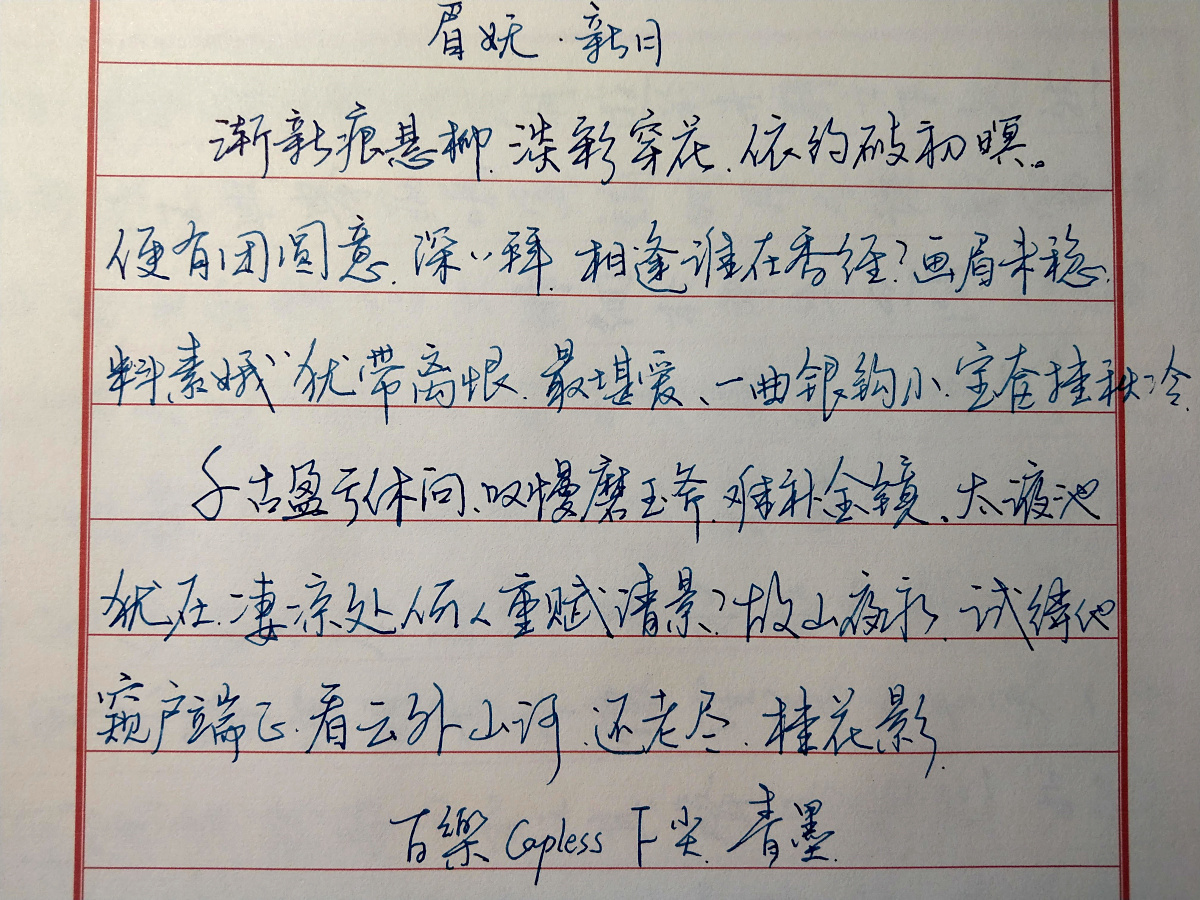 眉妩·新月
渐新痕悬柳,淡彩穿花,依约破初暝。
便有团圆意,深深拜,相逢谁在香径?画眉未稳,
料素娥、犹带离恨。最堪爱、一曲银钩小,宝奁挂秋冷。
千古盈亏休问,叹慢磨玉斧,难补金镜。太液池
犹在,凄凉处、何人重赋清景?故山夜永,试待他
窥户端正。看云外山河,还老尽、桂花影。
百樂 Capless F尖. 青墨.